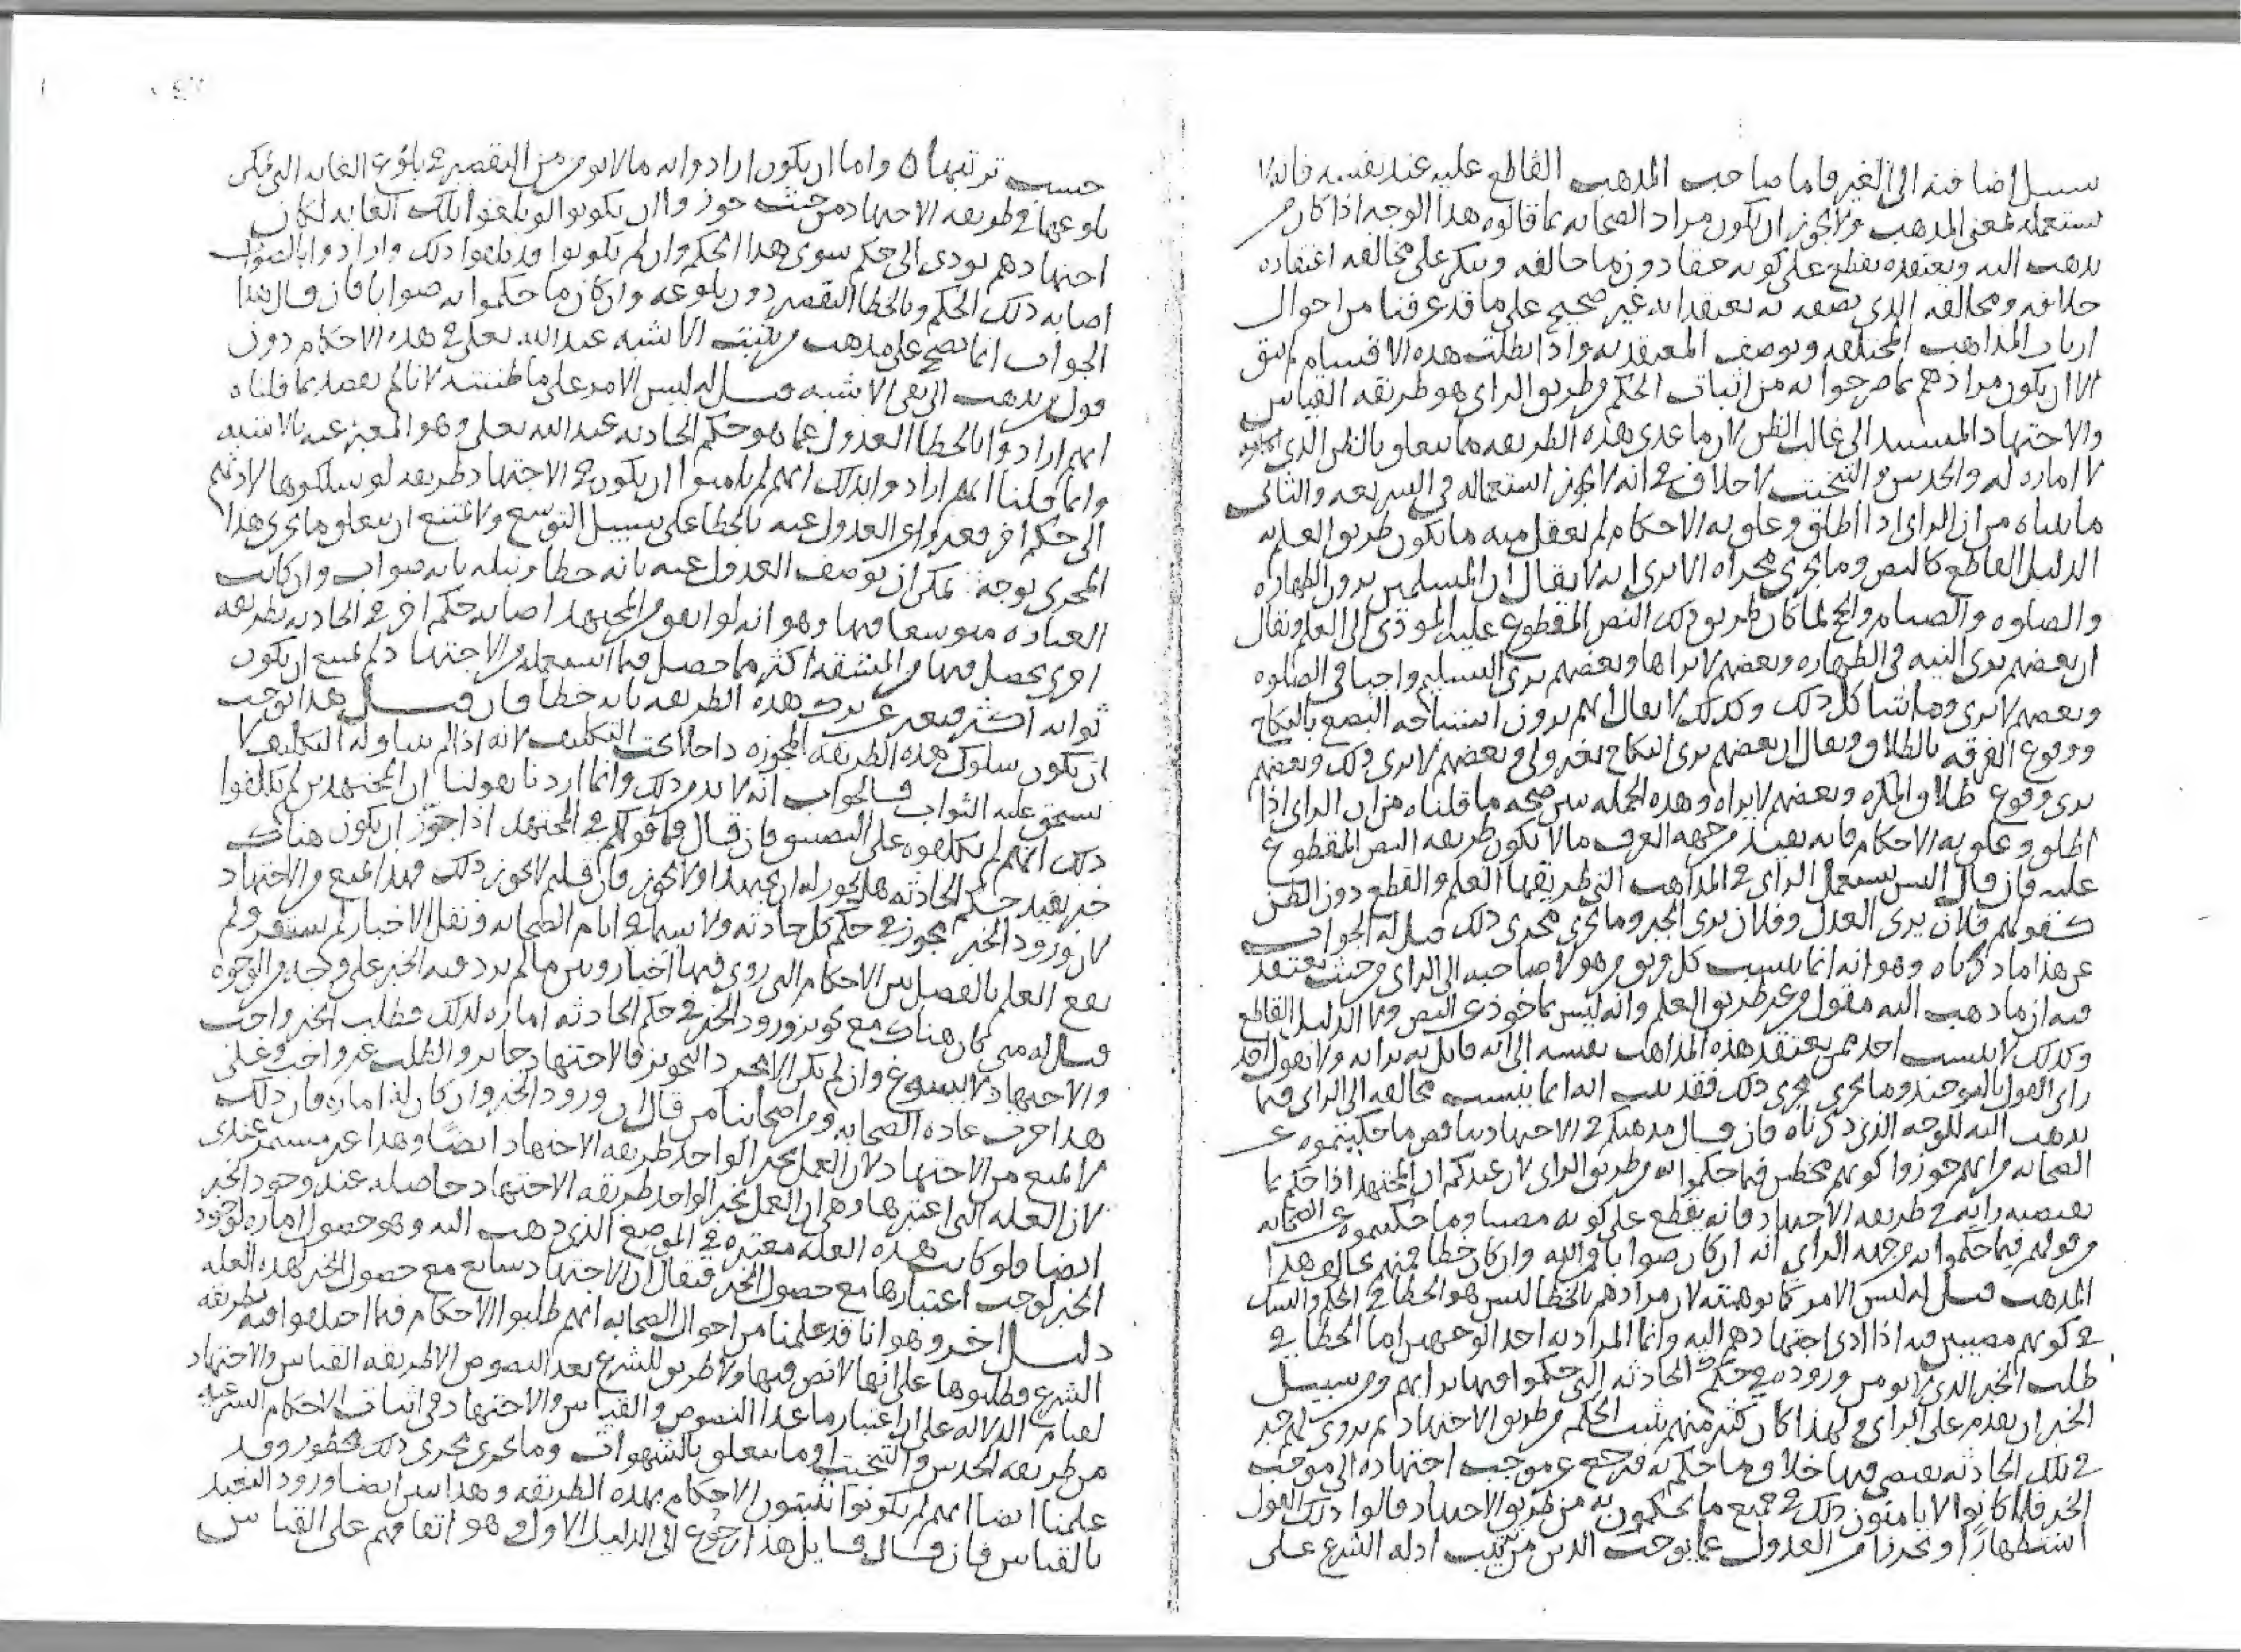 سبيل اضافته الى الغير فاما صاحب المذهب القاطع عليه عند نفسه فانه لا
يستعمله لمعنى المذهب ولا يجوز ان يكون مراد الصحابة بما قالوه هذا الوجه اذا كان من
يذهب اليه ويعتقده يقطع على كونه حقا دون ما خالفه وينكر على مخالفه اعتقاده
خلافه ومخالفه الذي يصفه به يعتقد انه غير صحيح على ما قد عرفنا من احوال
ارباب المذاهب المختلفه وبوصف المعتقد به واذا بطلت هذه الاقسام لم يبق
الا ان يكون مرادهم بما صرحوا به من اثبات الحكم من طريق الراي هو طريقه القياس
والاجتهاد المستند الى غالب الظن لان ما عدى هذه الطريقه مما يتعلق بالظن الذي
لا اماره له والحدس والتبخيت لا خلاف في انه لا يجوز استعماله في الشريعه والثاني
ما بيناه من ان الراي اذا اطلق وعلق به الاحكام لم يعقل منه ما يكون طريق العلم به
الدليل القاطع كالنص وما يجري مجراه الا ترى انه لا يقال ان المسلمين يرون الطهاره
والصلوه والصيام والحج لما كان طريق ذلك النص المقطوع عليه المودي الى العلم ويقال
ان بعضهم يرى النيه في الطهاره وبعضهم لا يراها وبعضهم يرى التسليم واجبا في الصلوه
وبعضهم لا يرى وما شاكل ذلك وكذلك لا يقال انهم يرون استباحه البضع بالنكاح
ووقوع الفرقه بالطلاق ويقال ان بعضهم يرى النكاح بغير ولي وبعضهم لا يرى ذلك وبعضهم
يرى وقوع طلاق المكره وبعضهم لا يراه وهذه الجمله تبين صحه ما قلناه من ان الراي اذا
اطلق وعلق به الاحكام فانه يفيد من جهه العرف ما لا يكون طريقه النص المقطوع
عليه فان قال اليس يستعمل الراي في المذاهب التي طريقها العلم والقطع دون الظن
كقولهم فلان يرى العدل وفلان يرى الجبر وما يجري مجرى ذلك قيل له الجواب
عن هذا ما ذكرناه وهو انه انما ينسب كل فريق من هولا صاحبه الى الراي من حيث يعتقد
فيه ان ما ذهب اليه مقول من غير طريق العلم وانه ليس بماخوذ عن النص ولا الدليل القاطع
وكذلك لا ينسب احد ممن يعتقد هذه المذاهب نفسه الى انه قايل به برايه ولا نقول قد
راى القول بالتوحيد وما يجري مجرى ذلك فقد ثبت انه انما ينسب مخالفه الى الراي فيما
يذهب اليه للوجه الذي ذكرناه فان قال مذهبكم في الاجتهاد يناقض ما حكيتموه عن
الصحابه من انهم جوزوا كونهم مخطين فيما حكموا به من طريق الراي لان عندكم ان المجتهد اذا حكم بما
يقتضيه رايه في طريقه الاجتهاد فانه يقطع على كونه مصيبا وما حكيتموه عن الصحابه
من قولهم فيما حكموا به من جهه الراي انه ان كان صوابا فمن الله وان كان خطا فمنهم يخالف هذا
المذهب قيل له ليس الامر كما توهمته لان مرادهم بالخطا ليس هو الخطا في الحكم والشك
في كونهم مصيبين فيه اذا ادى اجتهادهم اليه وانما المراد به احد الوجهين اما الخطا في
طلب الخبر الذي لا يومن وروده في حكم الحادثه التي حكموا فيها برايهم ومن سبيل
الخبر ان يقدم على الراي ولهذا كان كثير منهم يثبت الحكم من طريق الاجتهاد ثم يروى لهم خبر
في تلك الحادثه يقتضي فيها خلاف ما حكم به فيرجع عن موجب اجتهاده الى موجب
الخبر فلما كانوا لا يامنون ذلك في جميع ما يحكمون به من طريق الاجتهاد قالوا ذلك القول
استظهارا وتحرزا من العدول عما يوجب الدين من ترتيب ادله الشرع على
حسب ترتيبها ٥ واما ان يكون ارادوا به ما لا يومن من التقصير عن بلوغ الغايه التي يمكن
بلوغها في طريقه الاجتهاد من حيث جوزوا ان يكونوا لو بلغوا تلك الغايه لكان
اجتهادهم يودي الى حكم سوى هذا الحكم وان لم يكونوا قد بلغوا ذلك وارادوا بالصواب
اصابه ذلك الحكم وبالخطا التقصير دون بلوغه وان كان ما حكموا به صوابا فان قال هذا
الجواب انما يصح على مذهب من يثبت الاشبه عند الله تعلى في هذه الاحكام دون
قول من يذهب الى نفي الاشبه قيل له ليس الامر على ما ظننته لانا لم نقصد بما قلناه
انهم ارادوا بالخطا العدول عما هو حكم الحادثه عند الله تعلى وهو المعبر عنه بالاشبه
وانما قلنا انهم ارادوا بذلك انهم لم يامنوا ان يكون في الاجتهاد طريقه لو سلكوها لادتهم
الى حكم اخر فعبروا عن العدول عنه بالخطا على سبيل التوسع ولا يمتنع ان يتعلق وما يجري هذا
المجرى بوجه يمكن ان يوصف العدول عنه بانه خطا ونيله بانه صواب وان كانت
العباره متوسعا فيها وهو انه لو اتفق من المجتهد اصابه حكم اخر في الحادثه بطريقه
اخرى يحصل فيها من المشقه اكثر مما حصل فيما استعمله من الاجتهاد لم يمتنع ان يكون
ثوابه اكثر فيعبر عن ترك هذه الطريقه بانه خطا فان قال هذا يوجب
ان يكون سلوك هذه الطريقه المجوزه داخلا تحت التكليف لانه اذا لم يتناوله التكليف لا
يستحق عليه الثواب فالجواب انه لا بد من ذلك وانما اردنا بقولنا ان المجتهدين لم يكلفوا
ذلك انهم لم يكلفوه على التضييق فان قال فما قولكم في المجتهد اذا جوز ان يكون هناك
خبر يفيد حكم الحادثه هل يجوز له ان يجتهد او لا يجوز فان قلتم لا يجوز ذلك فهذا يمنع من الاجتهاد
لان ورود الخبر يجوز في حكم كل حادثه ولا سيما في ايام الصحابه ونقل الاخبار لم يستقر ولم
يقع العلم بالفصل بين الاحكام التي روي فيها اخبار وبين ما لم يرد فيه الخبر على وجه من الوجوه
قيل له متى كان هناك مع تجويز ورود الخبر في حكم الحادثه اماره لذلك فطلب الخبر واجب
والاجتهاد لا يسوغ وان لم يكن الا مجرد التجويز فالاجتهاد جايز والطلب غير واجب وعلى
هذا جرت عاده الصحابه ومن اصحابنا من قال ان ورود الخبر وان كان له اماره فان ذلك
لا يمنع من الاجتهاد لان العمل بخبر الواحد طريقه الاجتهاد ايضا وهذا غير مستمر عندي
لان العله التي اعتبرها وهي ان العمل بخبر الواحد طريقه الاجتهاد حاصله عند وجود الخبر
ايضا فلو كانت هذه العله معتبره في الموضع الذي ذهب اليه وهو حصول اماره لوجود
الخبر لوجب اعتبارها مع حصول الخبر فيقال ان الاجتهاد سايغ مع حصول الخبر لهذه العله
دليل اخر وهو انا قد علمنا من احوال الصحابه انهم طلبوا الاحكام فيما اختلفوا فيه بطريقه
الشرع وطلبوها على انها لا نص فيها ولا طريق للشرع بعد النصوص الا طريقه القياس والاجتهاد
لقيام الدلاله على ان اعتبار ما عدا النصوص والقياس والاجتهاد في اثبات الاحكام الشرعيه
من طريقه الحدس والتبخيت او ما يتعلق بالشهوات وما يجري مجرى ذلك محظور وقد
علمنا ايضا انهم لم يكونوا يثبتون الاحكام بهذه الطريقه وهذا يبين ايضا ورود التعبد
بالقياس فان قال قايل هذا رجوع الى الدليل الاول وهو اتفاقهم على القياس